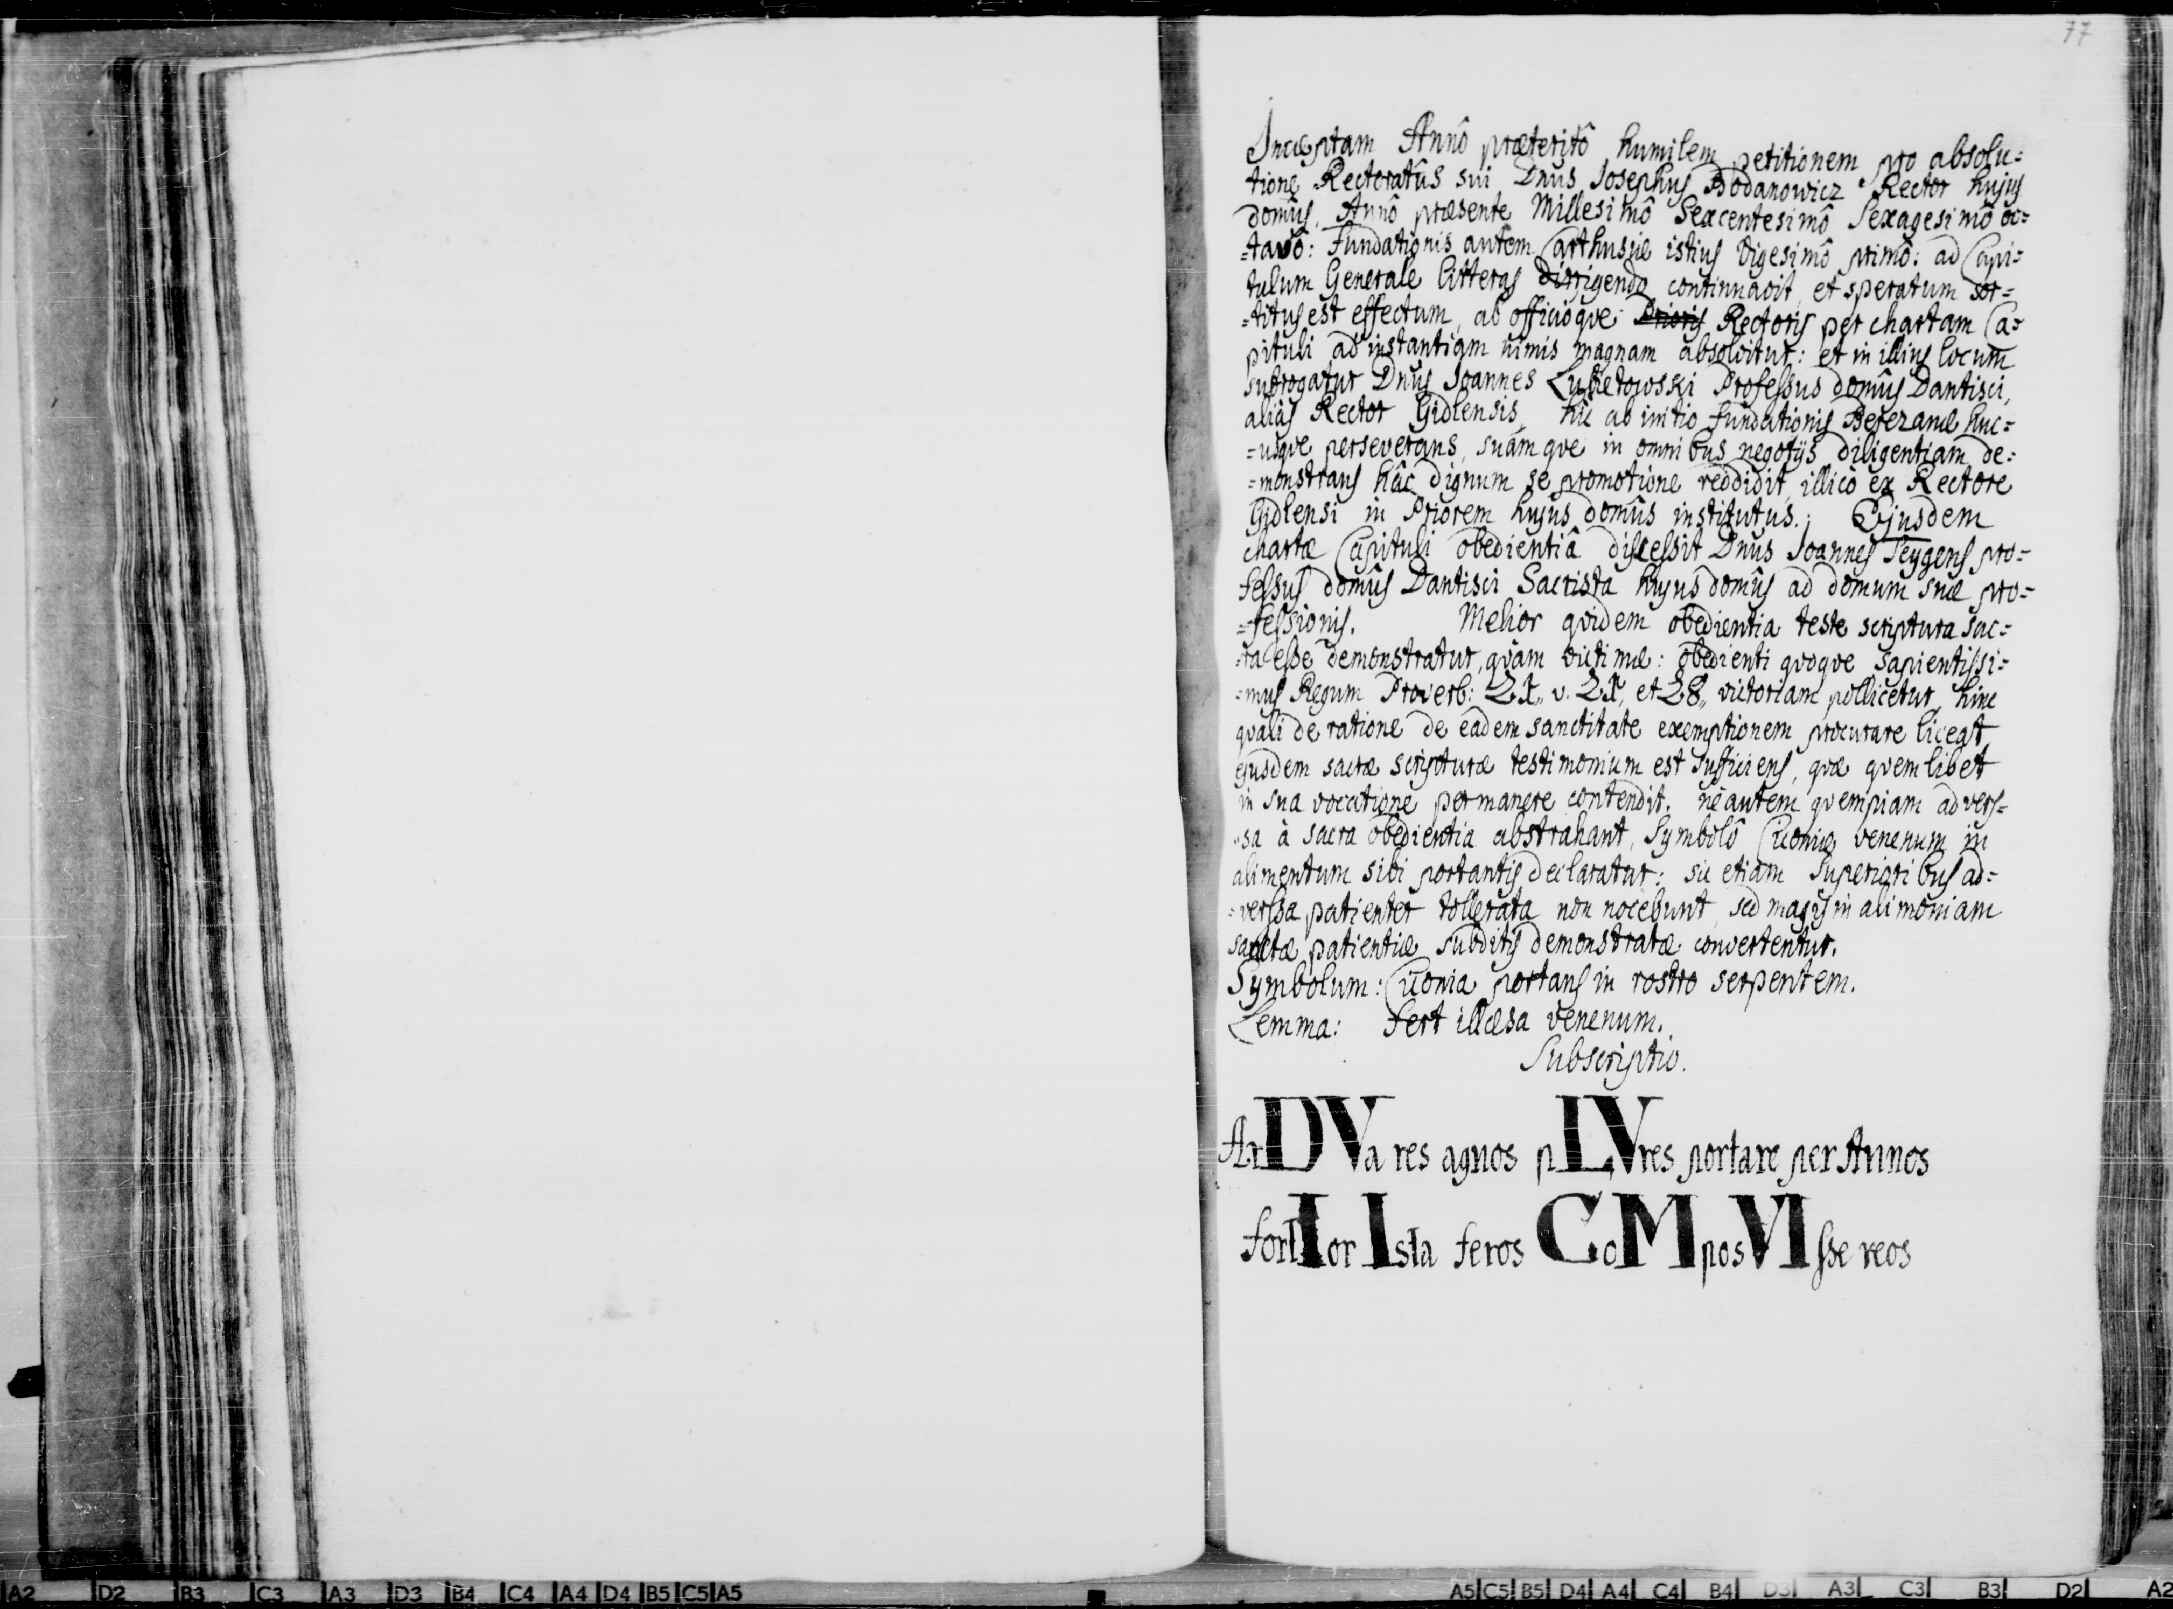 77
Incæptam Annô præteritô humilem petitionem pro absolu=
tione Rectoratûs sui Dnus Josephus Bodanowicz Rector hujus
domûs, Annô præsente Millesimô Sexcentesimô Sexagesimô oc=
=tavô: Fundationis autem Carthusiæ istius Vigesimô primô: ad Capi=
tulum Generale litteras dirrigendo continuavit, et speratum sor=
=titus est effectum, ab officioqve Prioris Rectoris per chartam Ca=
pituli ad instantiam nimis magnam absolvitur: et in illius locum
subrogatur Dnus Joannes Lubetowski Professus domûs Dantisci,
aliàs Rector Gidlensis, hic ab initio fundationis Berezanæ huc=
=usqve perseverans, suamqve in omnibus negotijs diligentiam de=
=monstrans hâc dignum se promotione reddidit, illicò ex Rectore
Gidlensi in Priorem hujus domûs institutus. Ejusdem
chartæ Capituli obedientiâ discessit Dnus Joannes Teygens pro=
fessus domûs Dantisci Sacrista hujus domûs ad domum suæ pro=
=fessionis. Melior qvidem obedientia teste scriptura sac=
=ra esse demonstratur, qvàm victimæ: obedienti qvoqve sapientissi=
=mus Regum Proverb: 21,, v. 21, et 28,, victoriam pollicetur, hinc
qvali de ratione de eadem sanctitate exemptionem procurare liceat,
ejusdem sacræ scripturæ testimonium est sufficiens, qvæ qvemlibet
in sua vocatione permanere contendit. nè autem qvempiam advers=
=sa à sacra obedientia abstrahant, Symbolô Ciconiæ venenum in
alimentum sibi portantis declaratur: sic etiam Superioribus ad=
=versa patienter tollerata non nocebunt, sed magis in alimoniam
sanctæ patientiæ subditis demonstratæ convertentur.
Symbolum: Ciconia portans in rostro serpentem.
Lemma: Fert illæsa venenum.
Subscriptio.
ArDVa res agnos pLVres portare per Annos
fortIor Ista feros CoMposVIsse reos
A2 D2 B3 C3 A3 D3 B4 C4 A4 D4 B5 C5 A5
A5 C5 B5 D4 A4 C4 B4 D3 A3 C3 B3 D2 A2